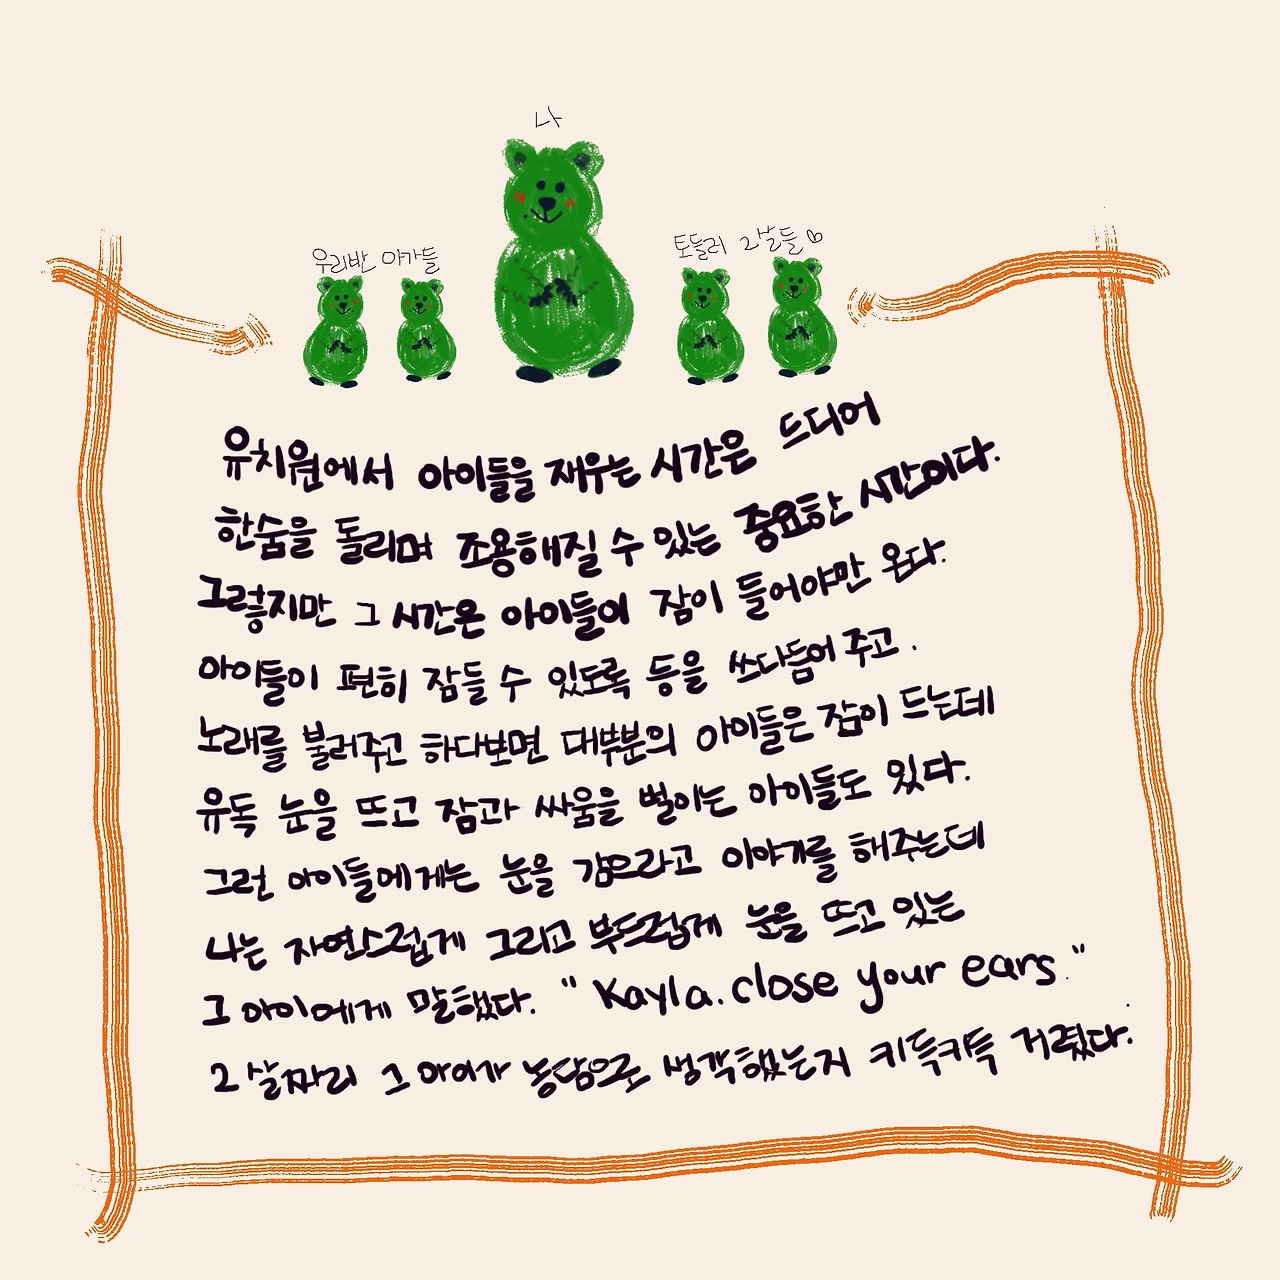 나
우리반 아가들
토들러 2살들
유치원에서 아이들을 재우는 시간은 드디어
한숨을 돌리며 조용해질 수 있는 중요한 시간이다.
그렇지만 그 시간은 아이들이 잠이 들어야만 온다.
아이들이 편히 잠들 수 있도록 등을 쓰다듬어 주고.
노래를 불러주고 하다보면 대부분의 아이들은 잠이 드는데
유독 눈을 뜨고 잠과 싸움을 벌이는 아이들도 있다.
그런 아이들에게는 눈을 감으라고 이야기를 해주는데
나는 자연스럽게 그리고 부드럽게 눈을 뜨고 있는
그 아이에게 말했다. "Kayla. close your ears."
2살짜리 그 아이가 농담으로 생각했는지 키득키득 거렸다.